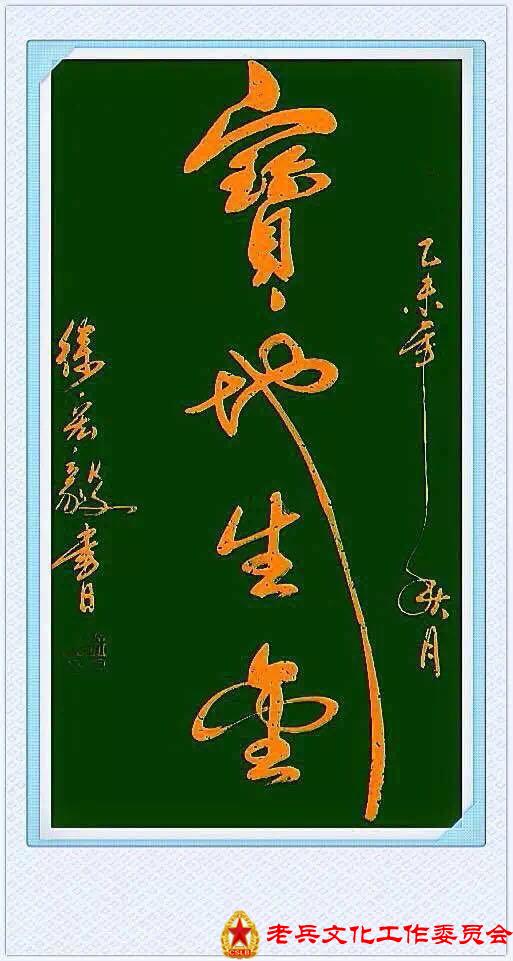 乙未年秋月
寶地生金
徐宏毅書
老兵文化工作委员会